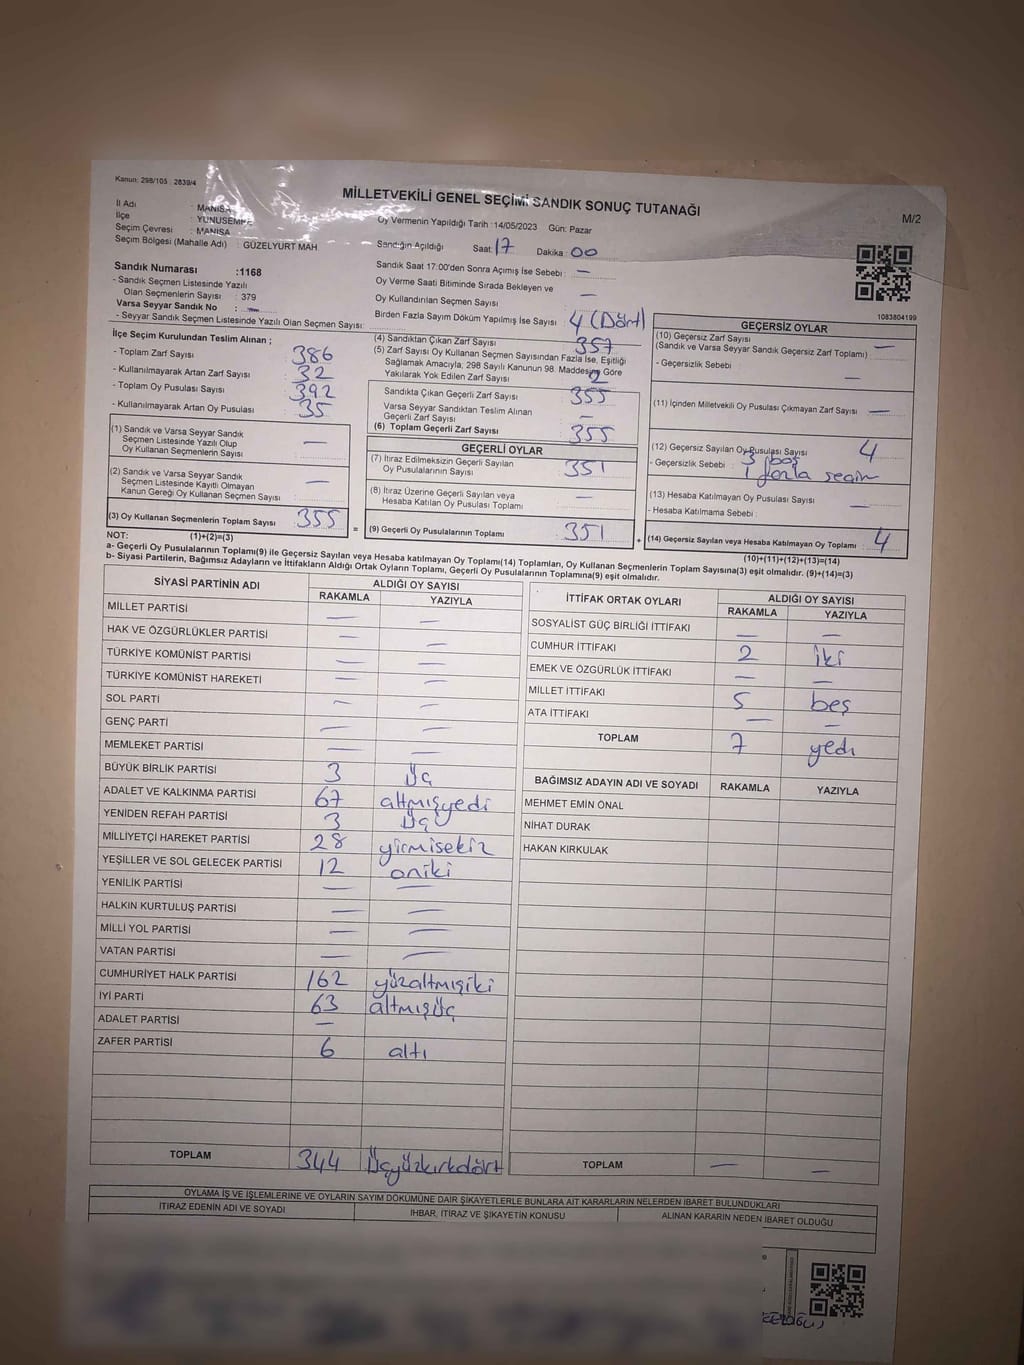 Kanun: 298/105 , 2839/4
MİLLETVEKİLİ GENEL SEÇİMİ SANDIK SONUÇ TUTANAĞI
M/2
İl Adı : MANİSA
İlçe : YUNUSEMRE
Seçim Çevresi : MANİSA
Seçim Bölgesi (Mahalle Adı) : GÜZELYURT MAH.
Oy Vermenin Yapıldığı Tarih :14/05/2023 Gün: Pazar
Sandığın Açıldığı Saat: 17 Dakika: 00
Sandık Saat 17:00'den Sonra Açımış İse Sebebi : —
Oy Verme Saati Bitiminde Sırada Bekleyen ve
Oy Kullandırılan Seçmen Sayısı —
Birden Fazla Sayım Döküm Yapılmış İse Sayısı : 4 (Dört)
Sandık Numarası :1168
- Sandık Seçmen Listesinde Yazılı
Olan Seçmenlerin Sayısı : 379
Varsa Seyyar Sandık No : —
- Seyyar Sandık Seçmen Listesinde Yazılı Olan Seçmen Sayısı:
1083804199
İlçe Seçim Kurulundan Teslim Alınan ;
- Toplam Zarf Sayısı : 386
- Kullanılmayarak Artan Zarf Sayısı : 32
- Toplam Oy Pusulası Sayısı : 392
- Kullanılmayarak Artan Oy Pusulası : 35
(1) Sandık ve Varsa Seyyar Sandık
Seçmen Listesinde Yazılı Olup
Oy Kullanan Seçmenlerin Sayısı : —
(2) Sandık ve Varsa Seyyar Sandık
Seçmen Listesinde Kayıtlı Olmayan
Kanun Gereği Oy Kullanan Seçmen Sayısı : —
(3) Oy Kullanan Seçmenlerin Toplam Sayısı : 355
(1)+(2)=(3)
(4) Sandıktan Çıkan Zarf Sayısı 357
(5) Zarf Sayısı Oy Kullanan Seçmen Sayısından Fazla İse, Eşitliği
Sağlamak Amacıyla, 298 Sayılı Kanunun 98. Maddesine Göre
Yakılarak Yok Edilen Zarf Sayısı 2
Sandıkta Çıkan Geçerli Zarf Sayısı 355
Varsa Seyyar Sandıktan Teslim Alınan
Geçerli Zarf Sayısı —
(6) Toplam Geçerli Zarf Sayısı 355
GEÇERLİ OYLAR
(7) İtiraz Edilmeksizin Geçerli Sayılan
Oy Pusulalarının Sayısı : 351
(8) İtiraz Üzerine Geçerli Sayılan veya
Hesaba Katılan Oy Pusulası Toplamı : —
= (9) Geçerli Oy Pusulalarının Toplamı : 351
GEÇERSİZ OYLAR
(10) Geçersiz Zarf Sayısı —
(Sandık ve Varsa Seyyar Sandık Geçersiz Zarf Toplamı)
- Geçersizlik Sebebi : —
(11) İçinden Milletvekili Oy Pusulası Çıkmayan Zarf Sayısı : —
(12) Geçersiz Sayılan Oy Pusulası Sayısı 4
- Geçersizlik Sebebi : 3 boş
1 fazla seçim
(13) Hesaba Katılmayan Oy Pusulası Sayısı —
- Hesaba Katılmama Sebebi :
+ (14) Geçersiz Sayılan veya Hesaba Katılmayan Oy Toplamı : 4
(10)+(11)+(12)+(13)=(14)
NOT:
a- Geçerli Oy Pusulalarının Toplamı(9) ile Geçersiz Sayılan veya Hesaba katılmayan Oy Toplamı(14) Toplamları, Oy Kullanan Seçmenlerin Toplam Sayısına(3) eşit olmalıdır. (9)+(14)=(3)
b- Siyasi Partilerin, Bağımsız Adayların ve İttifakların Aldığı Ortak Oyların Toplamı, Geçerli Oy Pusulalarının Toplamına(9) eşit olmalıdır.
SİYASİ PARTİNİN ADI ALDIĞI OY SAYISI
RAKAMLA YAZIYLA
MİLLET PARTİSİ — —
HAK VE ÖZGÜRLÜKLER PARTİSİ — —
TÜRKİYE KOMÜNİST PARTİSİ — —
TÜRKİYE KOMÜNİST HAREKETİ — —
SOL PARTİ — —
GENÇ PARTİ — —
MEMLEKET PARTİSİ — —
BÜYÜK BİRLİK PARTİSİ 3 Üç
ADALET VE KALKINMA PARTİSİ 67 altmışyedi
YENİDEN REFAH PARTİSİ 3 Üç
MİLLİYETÇİ HAREKET PARTİSİ 28 yirmisekiz
YEŞİLLER VE SOL GELECEK PARTİSİ 12 oniki
YENİLİK PARTİSİ — —
HALKIN KURTULUŞ PARTİSİ — —
MİLLİ YOL PARTİSİ — —
VATAN PARTİSİ — —
CUMHURİYET HALK PARTİSİ 162 yüzaltmışiki
İYİ PARTİ 63 altmışüç
ADALET PARTİSİ —
ZAFER PARTİSİ 6 altı
TOPLAM 344 Üçyüzkırkdört
İTTİFAK ORTAK OYLARI ALDIĞI OY SAYISI
RAKAMLA YAZIYLA
SOSYALİST GÜÇ BİRLİĞİ İTTİFAKI — —
CUMHUR İTTİFAKI 2 iki
EMEK VE ÖZGÜRLÜK İTTİFAKI — —
MİLLET İTTİFAKI 5 beş
ATA İTTİFAKI — —
TOPLAM 7 yedi
BAĞIMSIZ ADAYIN ADI VE SOYADI RAKAMLA YAZIYLA
MEHMET EMİN ÖNAL
NİHAT DURAK
HAKAN KIRKULAK
TOPLAM — —
OYLAMA İŞ VE İŞLEMLERİNE VE OYLARIN SAYIM DÖKÜMÜNE DAİR ŞİKAYETLERLE BUNLARA AİT KARARLARIN NELERDEN İBARET BULUNDUKLARI
İTİRAZ EDENİN ADI VE SOYADI İHBAR, İTİRAZ VE ŞİKAYETİN KONUSU ALINAN KARARIN NEDEN İBARET OLDUĞU